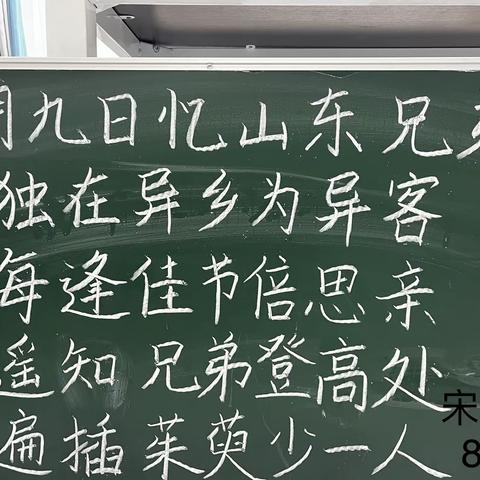 月九日忆山东兄
独在异乡为异客
每逢佳节倍思亲
遥知兄弟登高处
遍插茱萸少一人
宋
8